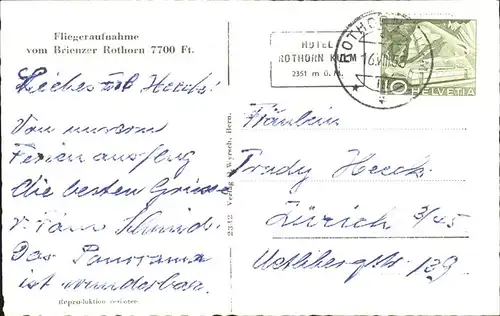 Fliegeraufnahme
vom Brienzer Rothorn 7700 Ft.
Liebes Heck!
Von unserm
Ferienausflug
die besten Grüsse
v. Fam. Schmid.
Das Panorama
ist wunderbar.
Reproduktion verboten
2312 Verlag Wyrsch, Bern.
HOTEL
ROTHORN KULM
2351 m ü. M.
ROTHO
16.VIII.
10
HELVETIA
Fräulein
Trudy Heck
Zürich 3/45
Uetlibergstr. 139